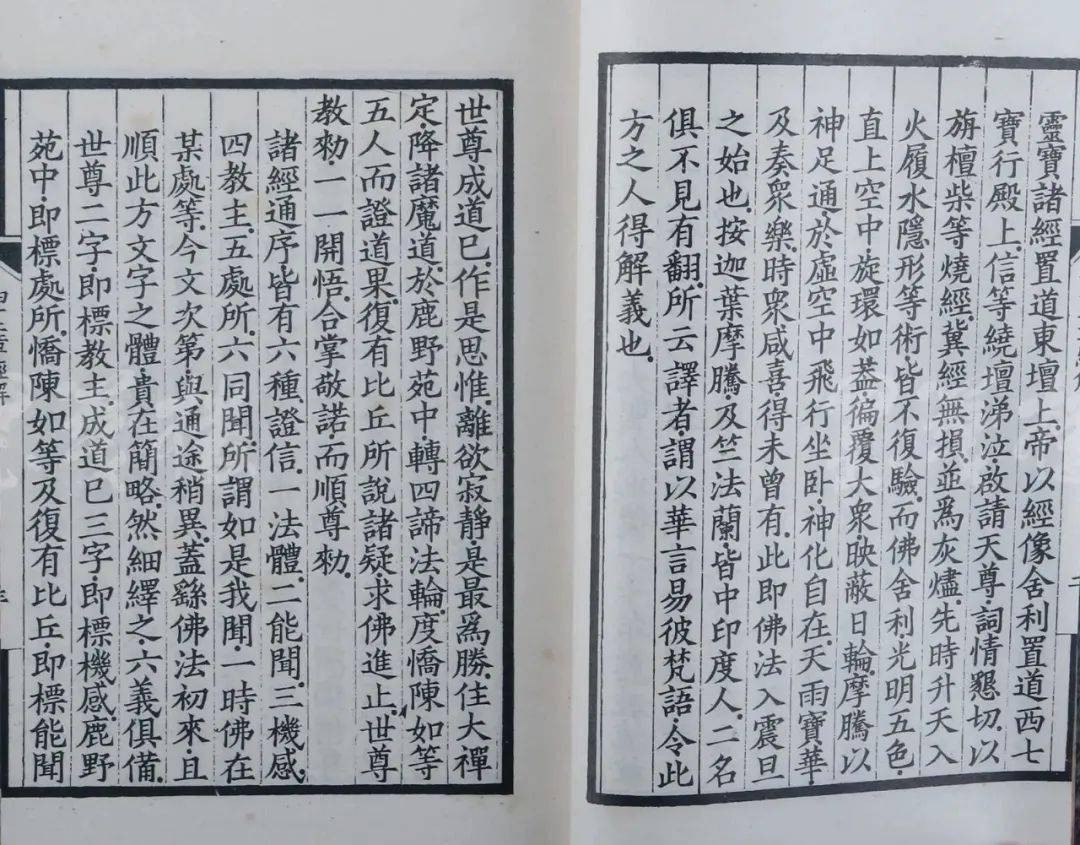 靈寶諸經置道東壇上.帝以經像舍利置道西七
寶行殿上.信等繞壇涕泣啟請天尊.詞情懇切.以
旃檀柴等燒經.冀經無損.並為灰燼.先時升天入
火履水隱形等術.皆不復驗.而佛舍利.光明五色.
直上空中旋環如葢.徧覆大衆.映蔽日輪.摩騰以
神足通.於虛空中飛行坐卧.神化自在.天雨寶華.
及奏衆樂.時衆咸喜.得未曾有.此即佛法入震旦
之始也.按迦葉摩騰.及竺法蘭.皆中印度人.二名
俱不見有翻.所云譯者.謂以華言易彼梵語.令此
方之人得解義也.
世尊成道已.作是思惟.離欲寂靜.是最為勝.住大禪
定.降諸魔道.於鹿野苑中.轉四諦法輪.度憍陳如等
五人而證道果.復有比丘所說諸疑.求佛進止.世尊
教勑.一一開悟.合掌敬諾.而順尊勑.
諸經通序.皆有六種證信.一法體.二能聞.三機感.
四教主.五處所.六同聞.所謂如是我聞.一時佛在
某處等.今文次第.與通途稍異.葢繇佛法初來.且
順此方文字之體.貴在簡略.然細繹之.六義俱備.
世尊二字.即標教主.成道已三字.即標機感.鹿野
苑中.即標處所.憍陳如等及復有比丘.即標能聞